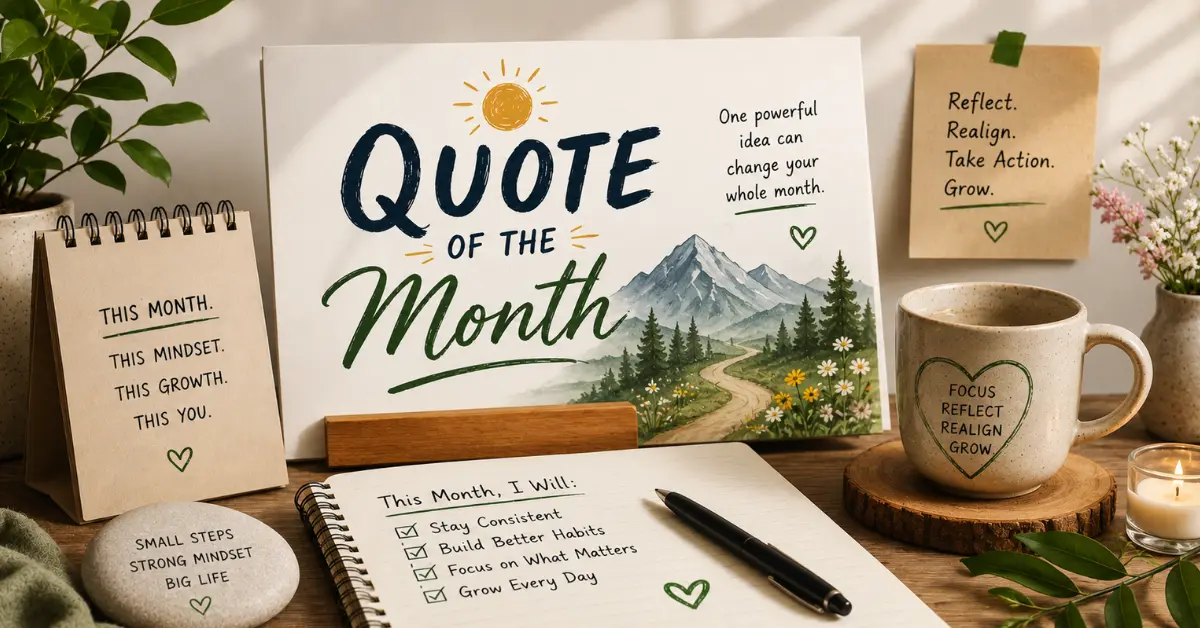 QUOTE
OF THE
Month
One powerful
idea can
change your
whole month.
Reflect.
Realign.
Take Action.
Grow.
THIS MONTH.
THIS MINDSET.
THIS GROWTH.
THIS YOU.
FOCUS
REFLECT
REALIGN
GROW.
This Month, I Will:
Stay Consistent
Build Better Habits
Focus on What Matters
Grow Every Day
SMALL STEPS
STRONG MINDSET
BIG LIFE